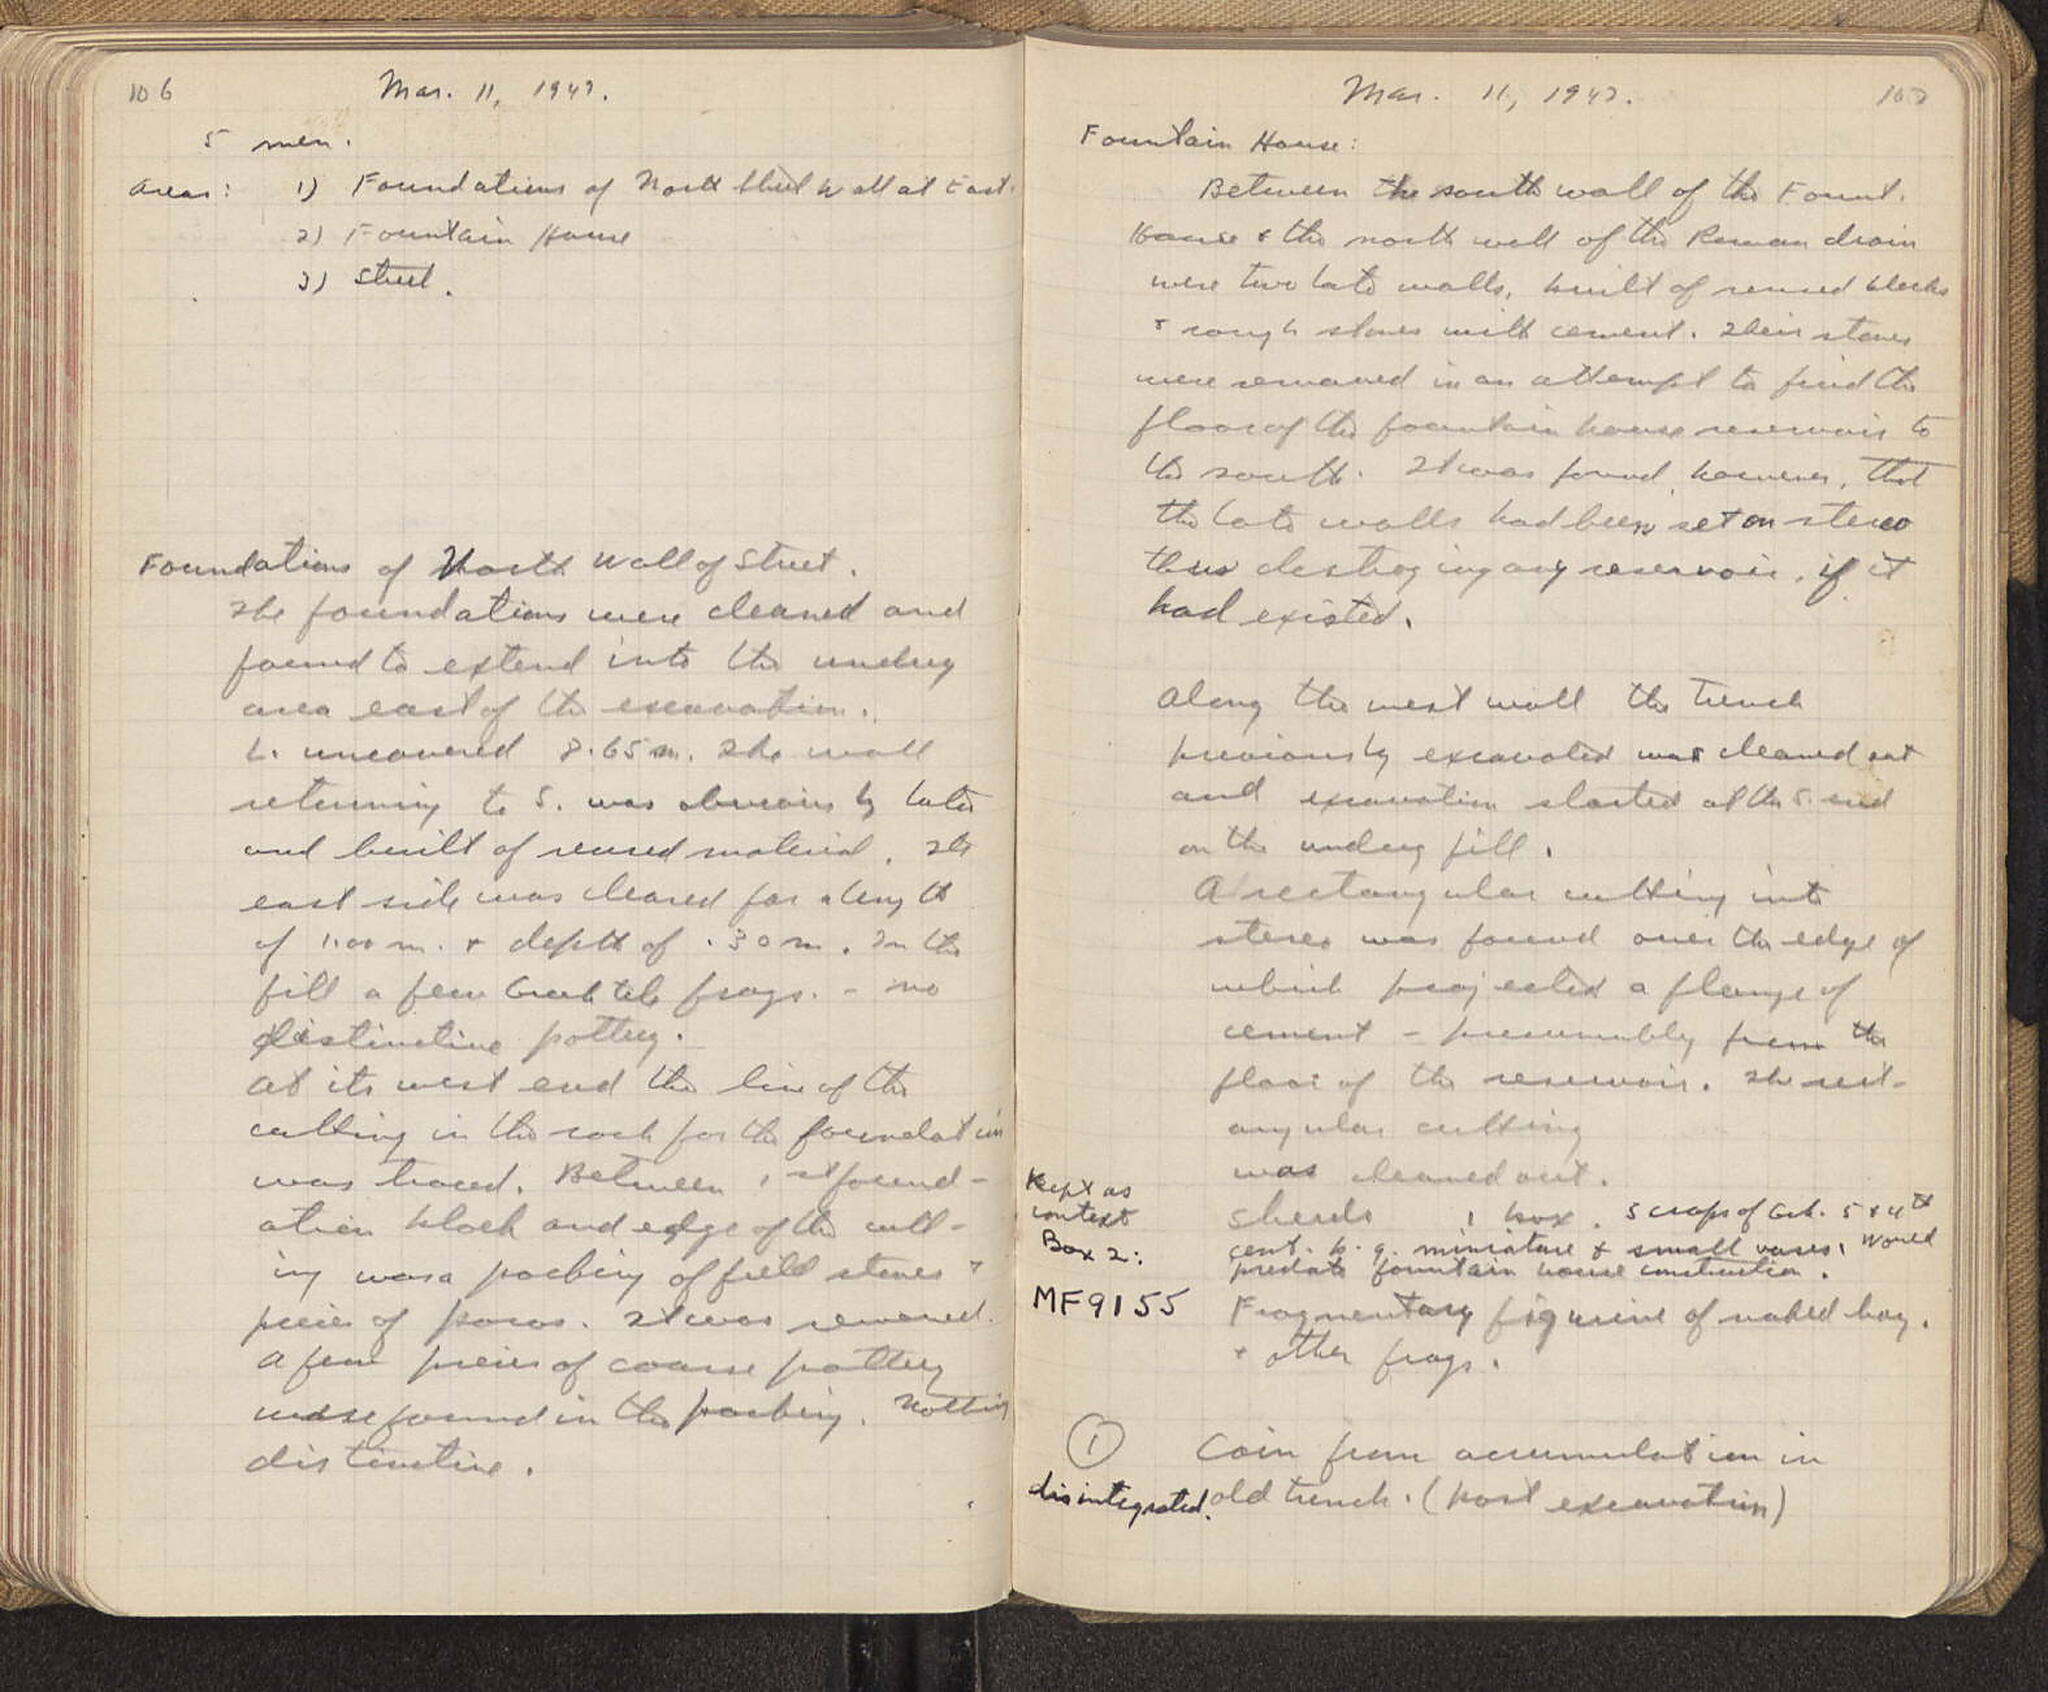 106
Mar. 11, 1947.
5 men.
Areas: 1) Foundations of North Street Wall at East.
2) Fountain House
3) Street.
Foundations of North Wall of Street.
The foundations were cleaned and
found to extend into the undug
area east of the excavation.
L. uncovered 8.65 m. The wall
returning to S. was obviously later
and built of reused material. The
east side was cleared for a length
of 1.00 m. & depth of .30 m. In the
fill a few Greek tile frags. - no
distinctive pottery.
At its west end the line of the
cutting in the rock for the foundation
was traced. Between 1st found-
ation block and edge of the cutt-
ing was a packing of field stones &
pieces of poros. It was removed.
A few pieces of coarse pottery
were found in the packing. Nothing
distinctive.
Mar. 11, 1947.
107
Fountain House:
Between the south wall of the Fount.
House & the north wall of the Roman drain
were two late walls, built of reused blocks
& rough stones with cement. Their stones
were removed in an attempt to find the
floor of the fountain house reservoir to
the south. It was found, however, that
the late walls had been set on stereo
thus destroying any reservoir, if it
had existed.
Along the west wall the trench
previously excavated was cleaned out
and excavation started at the S. end
on the undug fill.
A rectangular cutting into
stereo was found over the edge of
which projected a flange of
cement - presumably from the
floor of the reservoir. The rect-
angular cutting
was cleaned out.
Kept as
context
Box 2:
Sherds 1 box. Scraps of Gk. 5 & 4th
cent. b.g. miniature & small vases. Would
predate fountain house construction.
MF9155 Fragmentary figurine of naked boy.
& other frags.
① Coin from accumulation in
disintegrated. old trench. (post excavation)